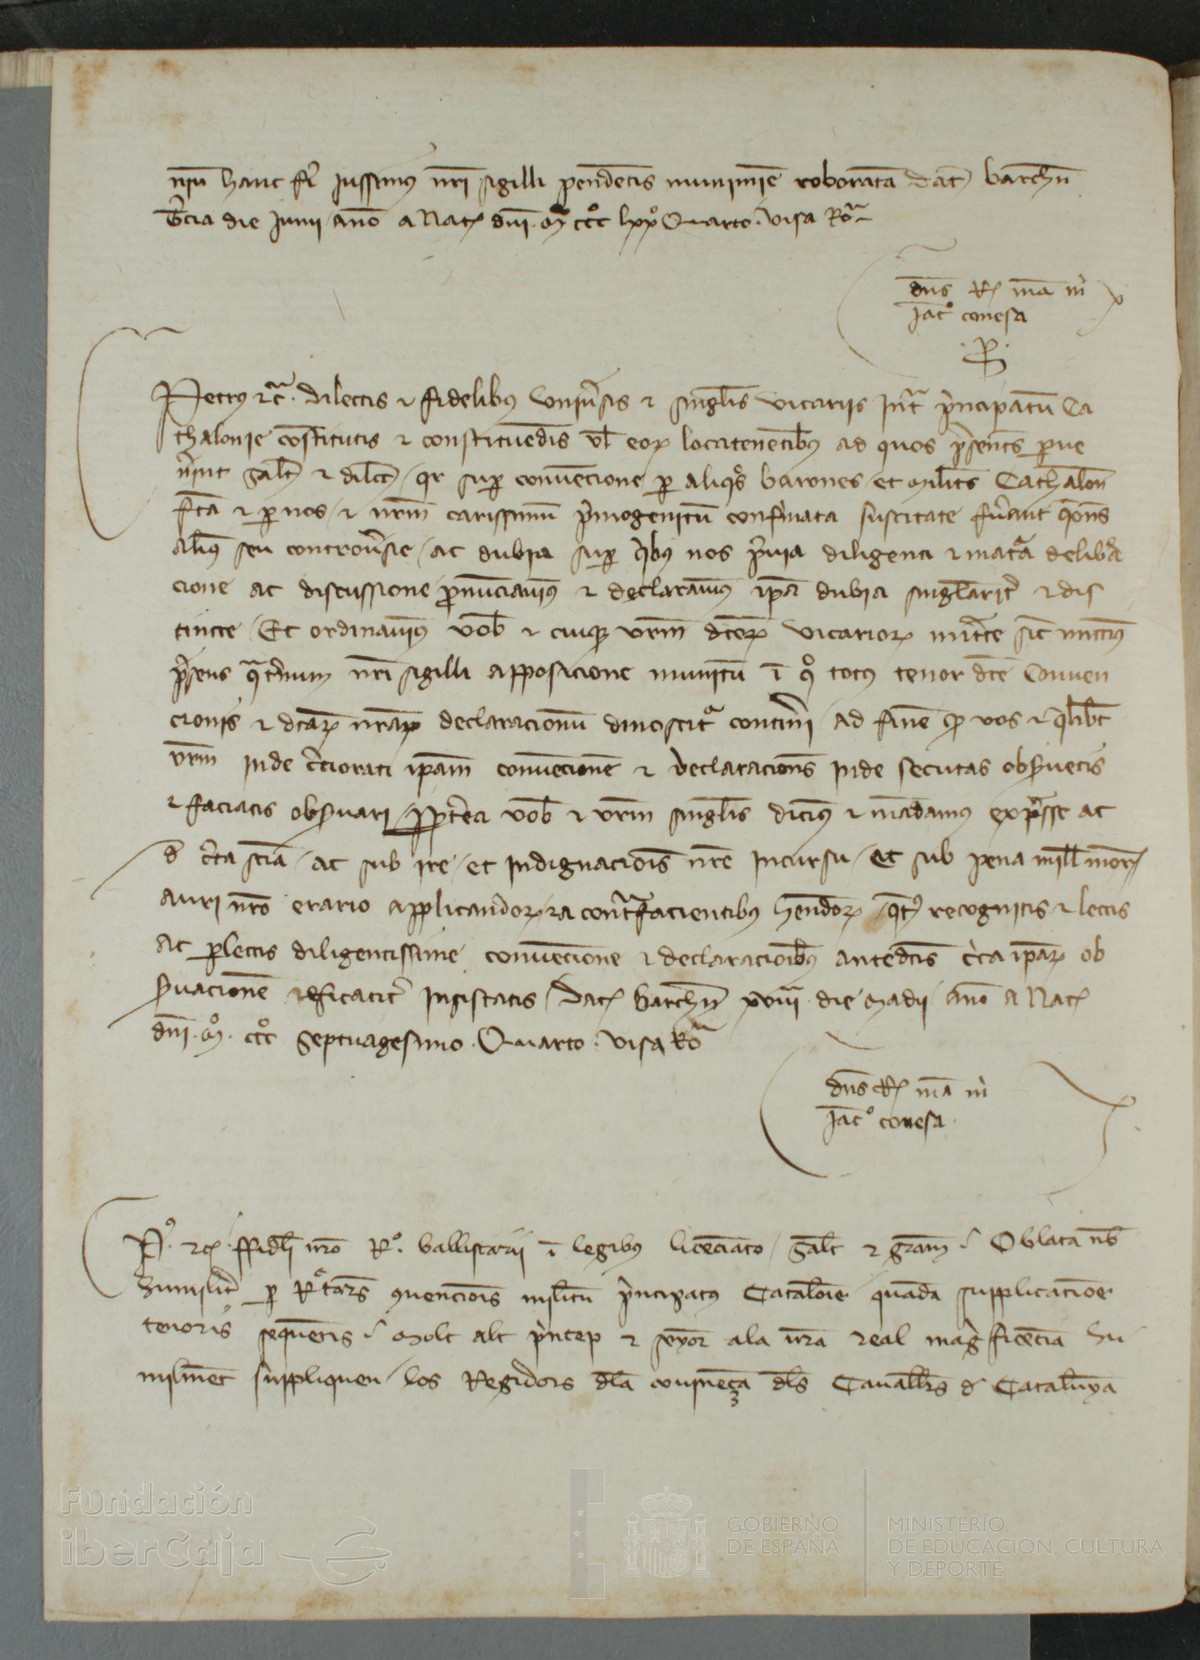 niu hanc fi Jussimus nri sigilli pendentis munimie roborata dat barchn
tercia die Junii Anno a Nat dni M ccc lxx Quarto. visa Ro
dns R ma m
Jac conesa
p
Petrus etc. dilectis et fidelibus universis et singlis vicariis infra principatu Ca
thalonie constitutis et constituendis vl eor locatenentibus ad quos psentes perve
nerint Salt et dilcc qr sup convencione p aliqs barones et milites Cathalon
fca et p nos et nrm carissimum primogenitu confirmata suscitate fuerant qons
alius seu controversie ac dubia sup quibus nos previa diligenti et matura delibera
cione ac discussione pronunciavimus et declaravimus ipa dubia singlarit et dis
tincte Et ordinavimus vob et cuique vrm dcor vicarior mitte sic mittimus
presens quaternum nri sigilli apposicione munitu i quo totus tenor dce Conven
cionis et dcar nrar declaracionu dinoscitur contineri ad fine q vos et quilibet
vrm inde certiorati ipam convencione et declaraciones inde secutas observetis
et faciatis observari ppterea vob et vrm singlis dicimus et mandamus expresse ac
d certa scia ac sub ire et indignacionis nre incursu et sub pena mill mor
auri nro erario applicandor a contrafacientibus hendor qt recognitis et lectis
ac perlectis diligentissime convencione et declaracionibus antedcis circa ipar ob
servacione efficacit insistatis Dat Barchn xviii die Madii Anno a Nat
dni M ccc Septuagesimo Quarto. visa Ro
dns R ma m
Jac conesa
P. etc ffideli nro R. ballistarii i legibus licenciato Salt et gram Oblata nob
humilit p Retores convencionis militu principatus Catalonie quada supplicacione
tenoris sequentis Molt alt princep et senyor ala vra real magnificencia hu
milment suppliquen los Regidors dla convineça dls Cavallers d Catalunya
Fundación
iberCaja
GOBIERNO
DE ESPAÑA
MINISTERIO
DE EDUCACIÓN, CULTURA
Y DEPORTE